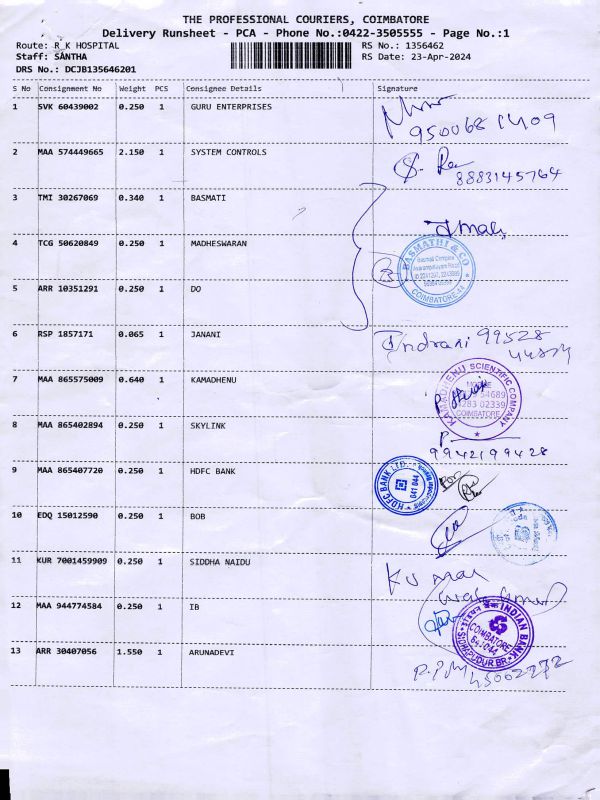 THE PROFESSIONAL COURIERS, COIMBATORE
Delivery Runsheet - PCA - Phone No.:0422-3505555 - Page No.:1
Route: R K HOSPITAL RS No.: 1356462
Staff: SANTHA RS Date: 23-Apr-2024
DRS No.: DCJB135646201
S No Consignment No Weight PCS Consignee Details Signature
1 SVK 60439002 0.250 1 GURU ENTERPRISES
2 MAA 574449665 2.150 1 SYSTEM CONTROLS
8883145764
3 TMI 30267069 0.340 1 BASMATI
4 TCG 50620849 0.250 1 MADHESWARAN
BASMATHI & CO
COIMBATORE-44
5 ARR 10351291 0.250 1 DO
6 RSP 1857171 0.065 1 JANANI
Indrani 99528
7 MAA 865575009 0.640 1 KAMADHENU
KAMADHENU SCIENTIFIC COMPANY
COIMBATORE
8 MAA 865402894 0.250 1 SKYLINK
9942199428
9 MAA 865407720 0.250 1 HDFC BANK
HDFC BANK LTD.
641 044
10 EDQ 15012590 0.250 1 BOB
11 KUR 7001459909 0.250 1 SIDDHA NAIDU
Kumar
12 MAA 944774584 0.250 1 IB
INDIAN BANK
COIMBATORE
641044
13 ARR 30407056 1.550 1 ARUNADEVI